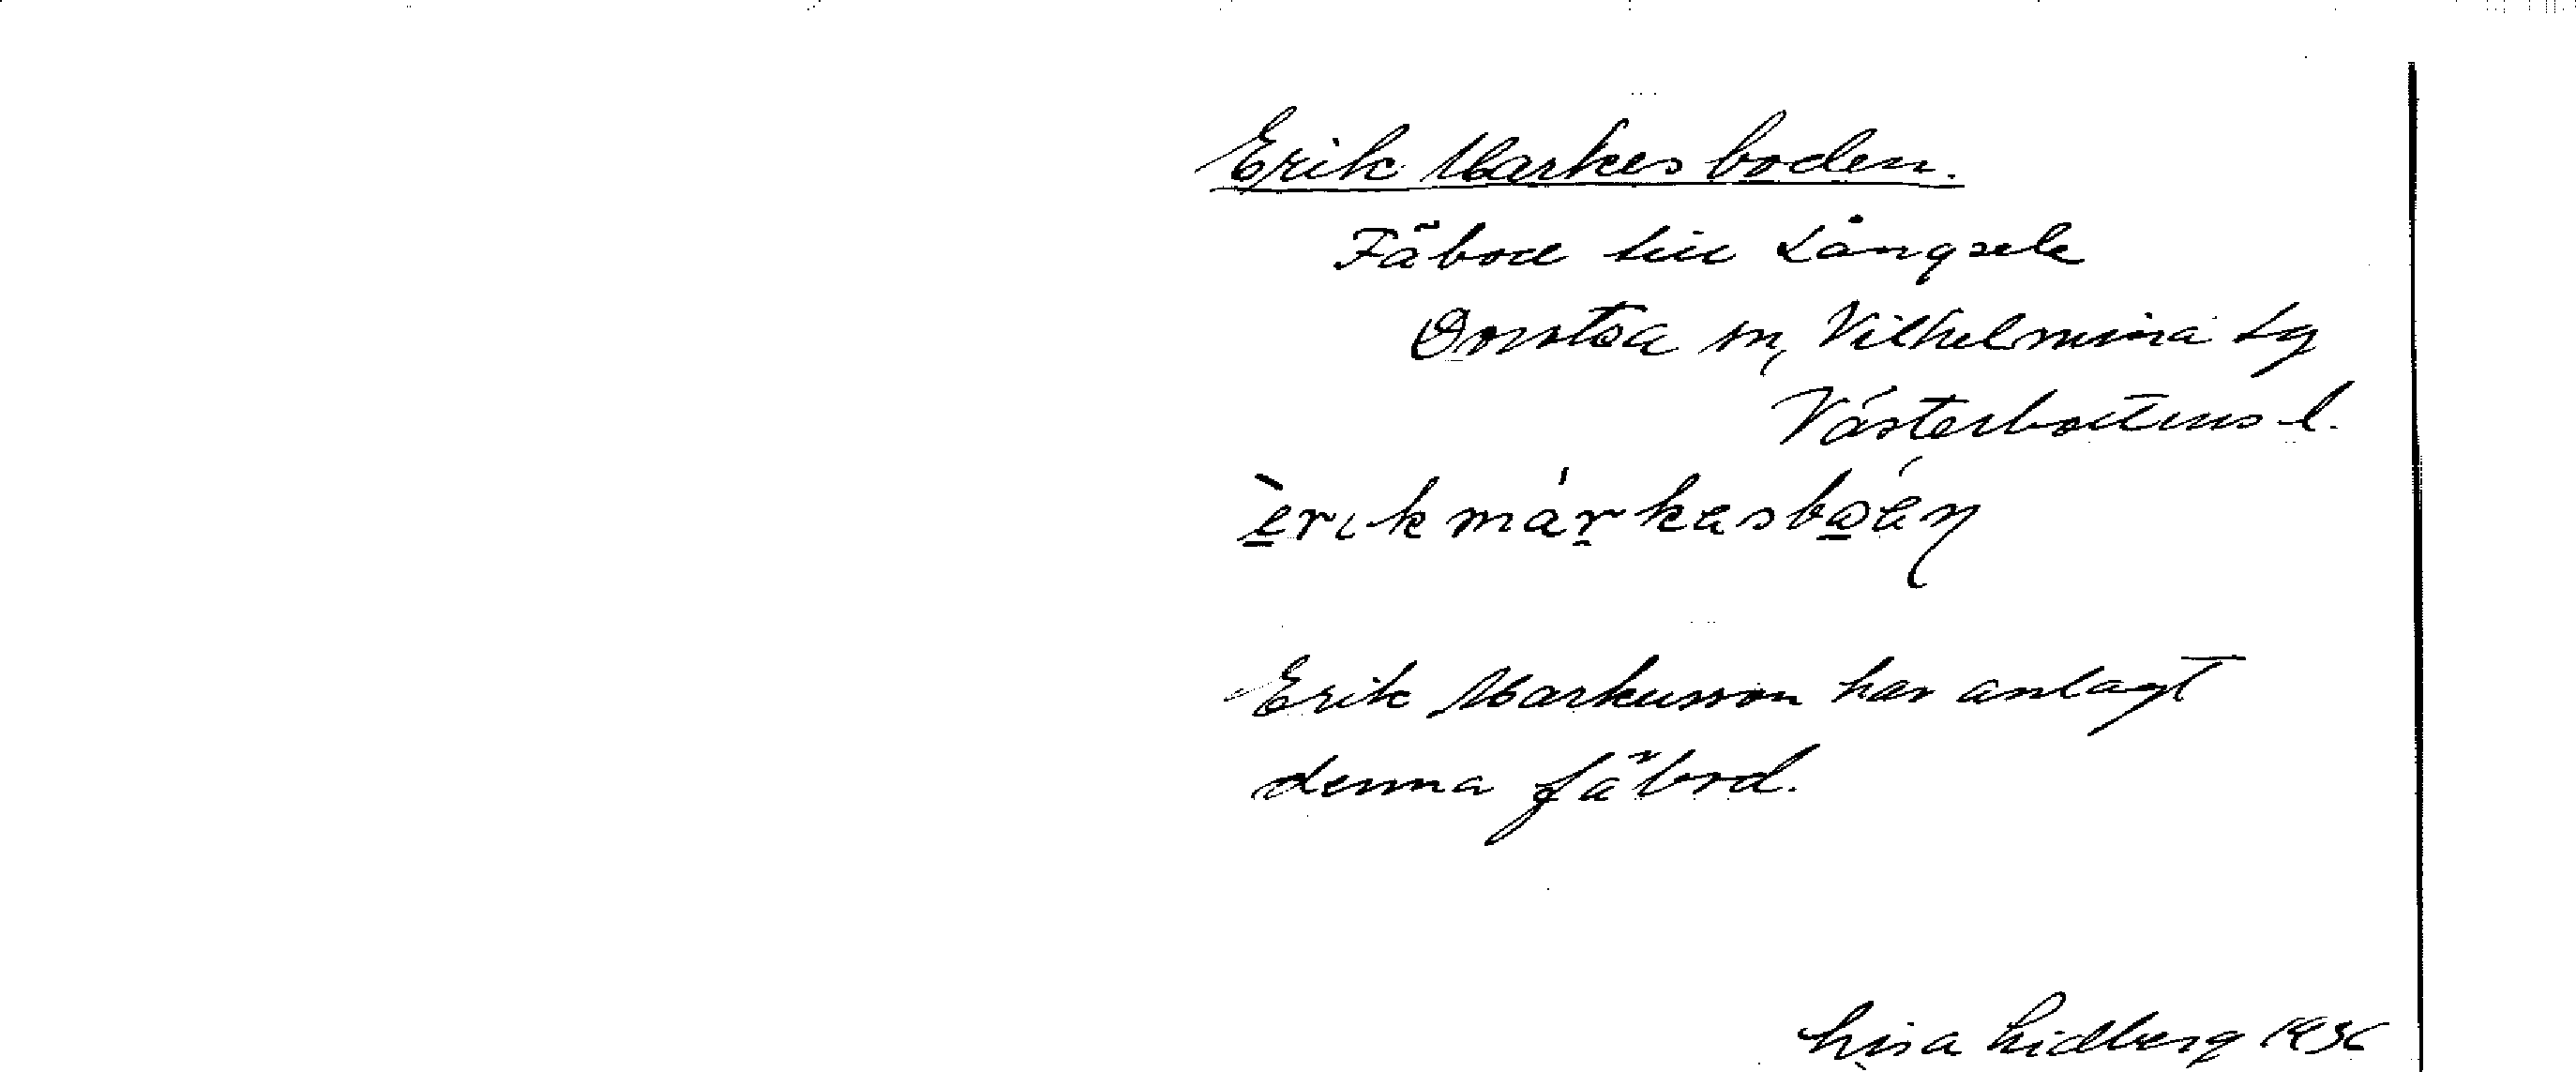 Erik Markesboden.
Fäbod till Långsele
Dorotea sn, Vilhelmina tg
Västerbottens l.
èrik márkasbǫan
Erik Markusson har anlagt
denna fäbod.
Lisa Lidberg 1936